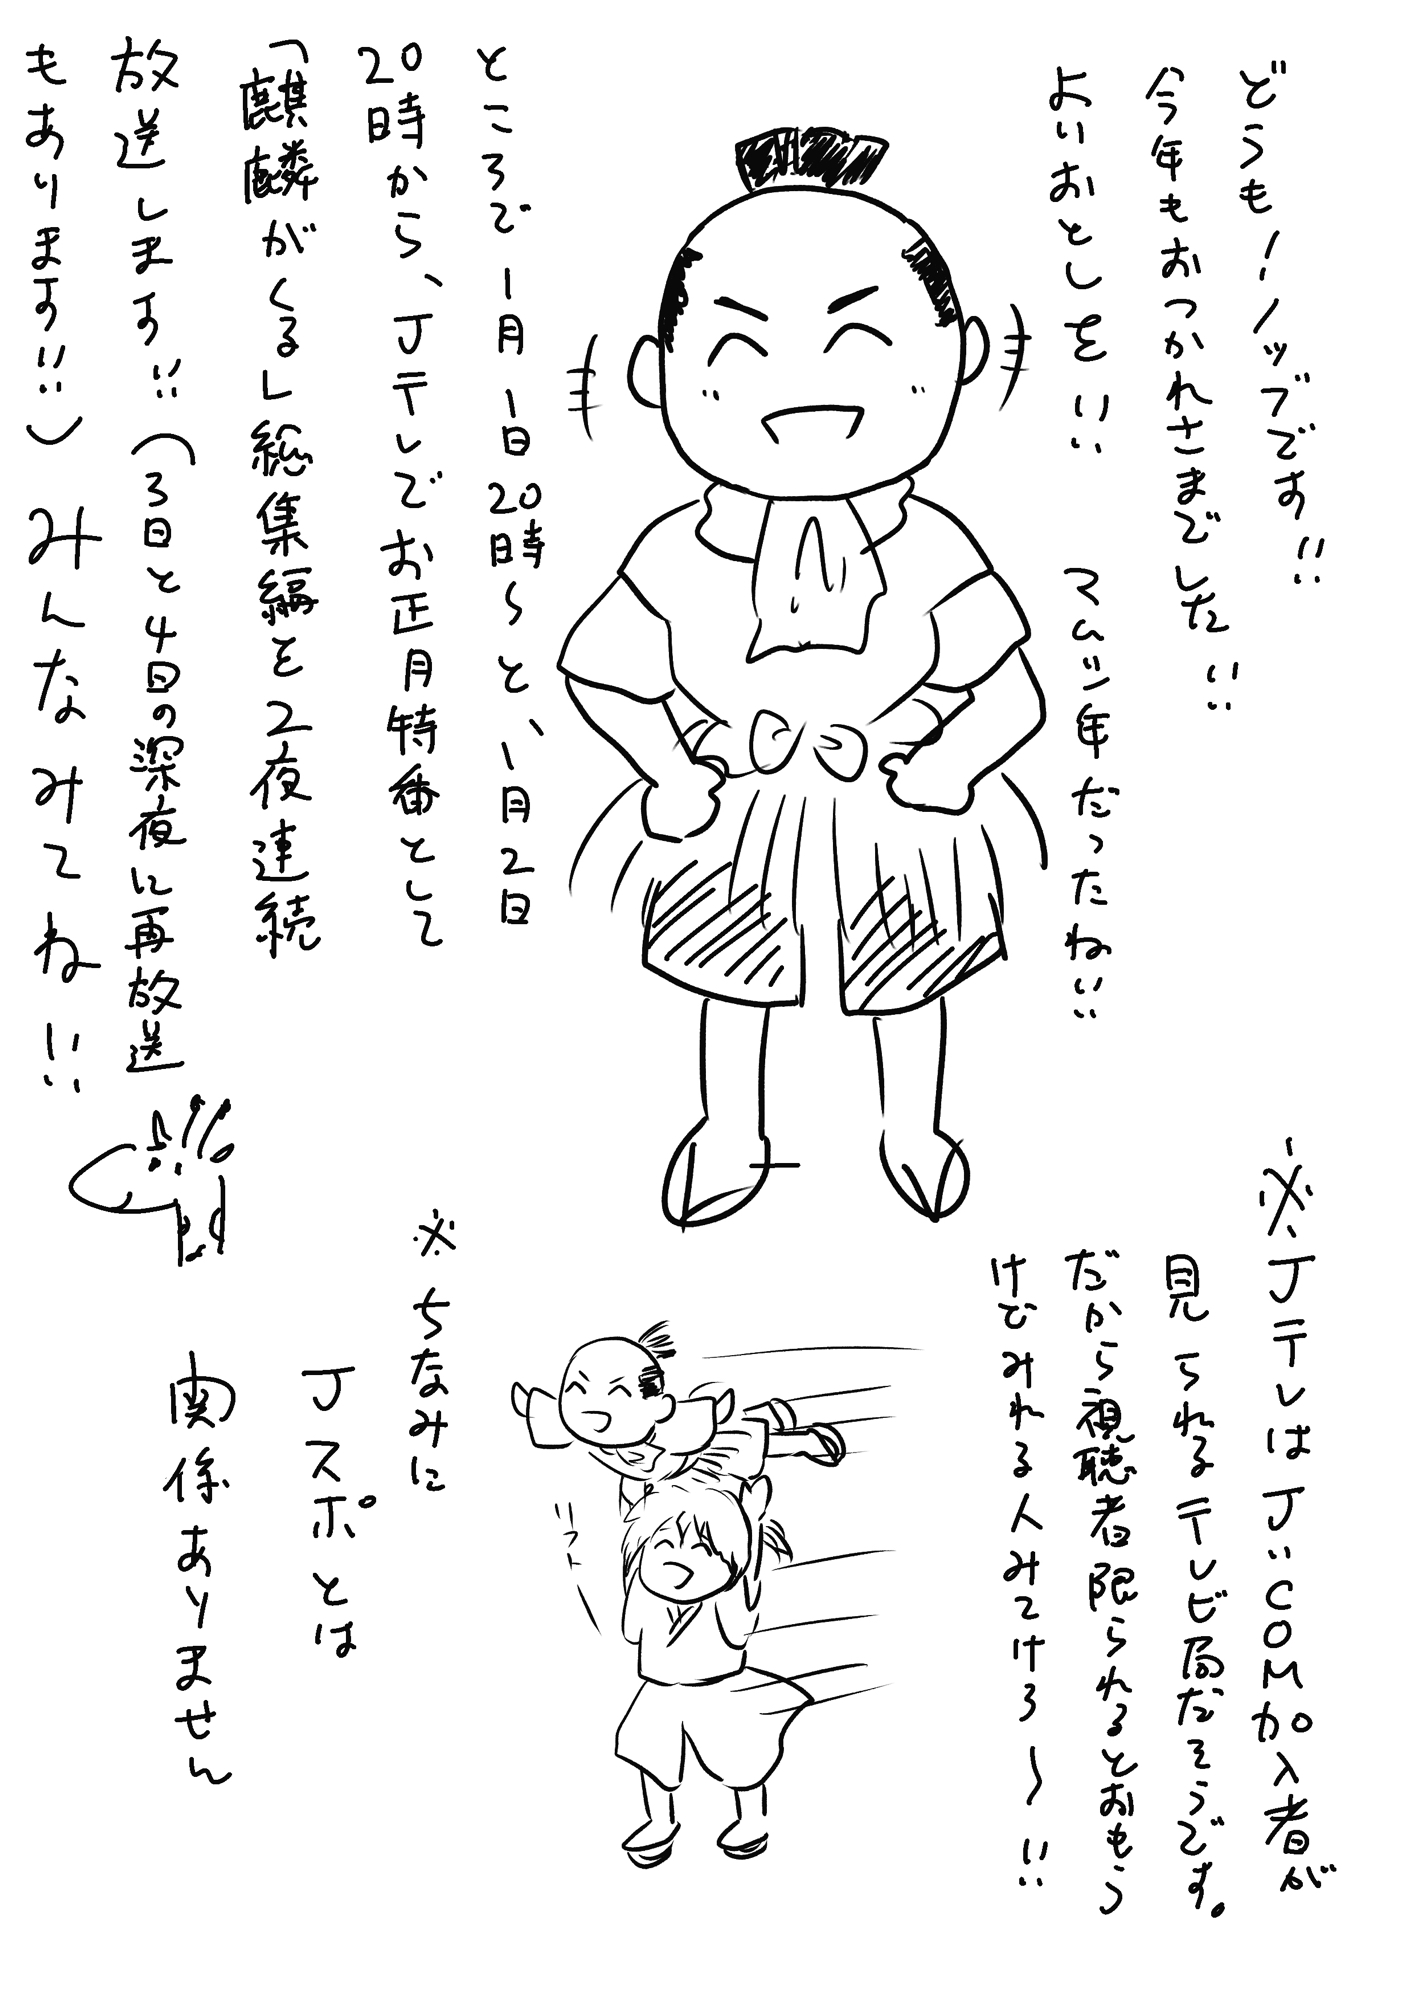 どうも！ノッブです！！
今年もおつかれさまでした！！
よいおとしを！！ マムシ年だったね！！
ところで1月1日20時〜と、1月2日
20時から、Jテレでお正月特番として
「麒麟がくる」総集編を2夜連続
放送します！！（3日と4日の深夜に再放送
もあります！！）みんなみてね！！
※JテレはJ:COM加入者が
見られるテレビ局だそうです。
だから視聴者限られるとおもう
けどみれる人みてけろ〜！！
リフト
※ちなみに
Jスポとは
関係ありません